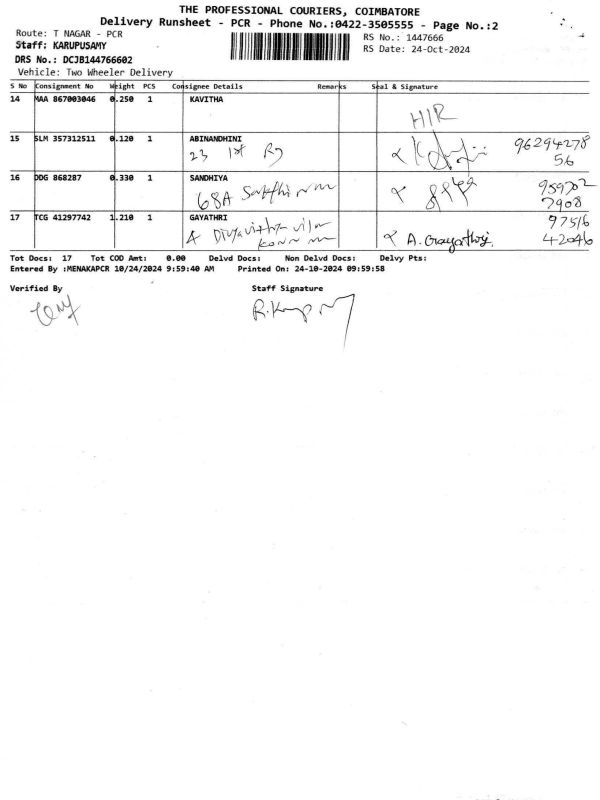 THE PROFESSIONAL COURIERS, COIMBATORE
Delivery Runsheet - PCR - Phone No.:0422-3505555 - Page No.:2
Route: T NAGAR - PCR
RS No.: 1447666
Staff: KARUPUSAMY
RS Date: 24-Oct-2024
DRS No.: DCJB144766602
Vehicle: Two Wheeler Delivery
S No Consignment No Weight PCS Consignee Details Remarks Seal & Signature
14 MAA 867003046 0.250 1 KAVITHA
H/R
15 SLM 357312511 0.120 1 ABINANDHINI
23 1st 96294278
56
16 DDG 868287 0.330 1 SANDHIYA
68A 959702
7908
17 TCG 41297742 1.210 1 GAYATHRI 97516
4 A. Gayathri 42046
Tot Docs: 17 Tot COD Amt: 0.00 Delvd Docs: Non Delvd Docs: Delvy Pts:
Entered By :MENAKAPCR 10/24/2024 9:59:40 AM Printed On: 24-10-2024 09:59:58
Verified By Staff Signature